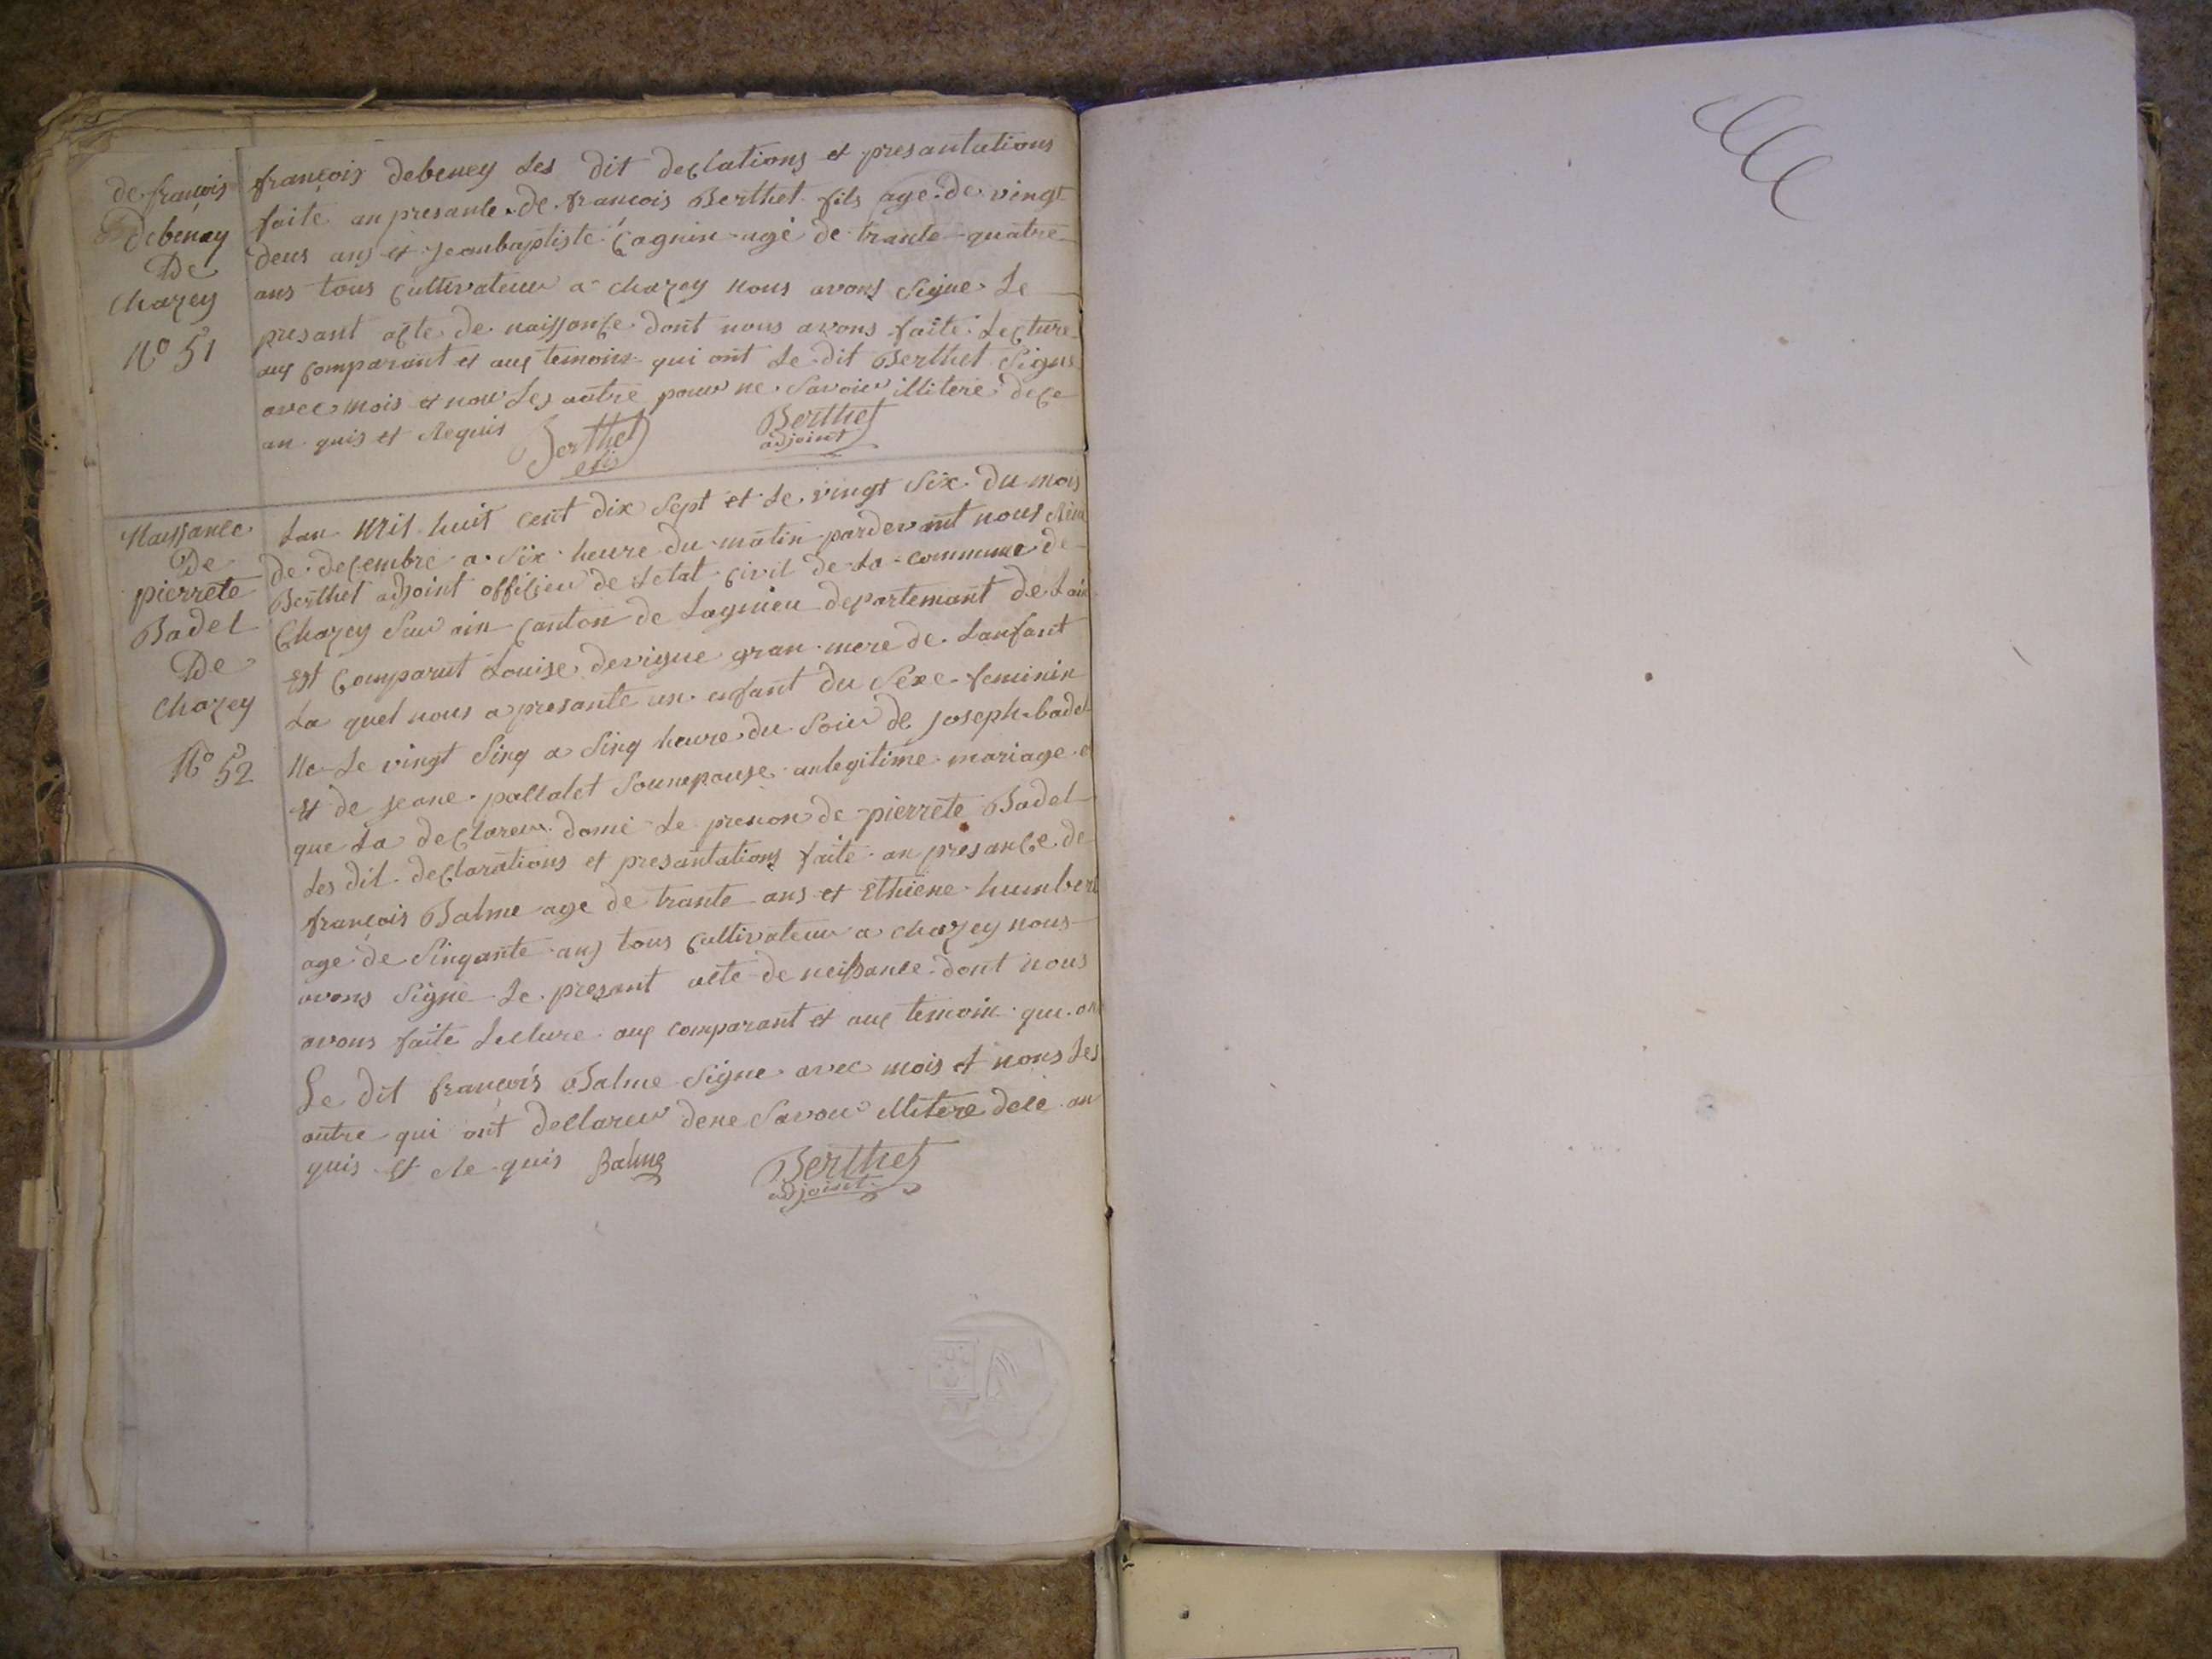 de françois
Debenay
De
Chazey
N° 51
françois debeney Les dit declations et presantations
faite an presante de francois Berthet fils age de vingt
deus ans et Jeanbaptiste Cagnin agé de trante quatre
ans tous Cultivateur a chazey nous avons Signe Le
presant acte de naissance dont nous avons faite Lecture
aux comparant et aux temoins qui ont Le dit Berthet Signe
avec mois et non Les autre pour ne Savoir illitere de ce
an quis et Requis
Berthet
fils
Berthet
adjoint
Naissance
De
pierrete
Badel
De
Chazey
N° 52
Lan Mil huit cent dix Sept et Le vingt Six du mois
de decembre a Six heure du matin pardevant nous
Berthet adjoint officier de Letat civil de La commune de
Chazey Sur ain Canton de Lagnieu departemant de Lain
Est Comparut Louise devigne gran mere de Lanfant
La quel nous a presante un enfant du Sexe feminin
Ne Le vingt Sinq a Sinq heure du Soir de joseph badel
et de jeane pallalet Sounepouse anlegitime mariage e
que La declareur domé Le prenon de pierrete Badel
Les dit declarations et presantations faite an presance de
françois Balme age de trante ans et Ethiene humbert
age de Sinqante ans tous Cultivateur a chazey nous
avons Signe Le presant acte de neissance dont nous
avons faite Lecture aux comparant et aux temoin qui on
Le dit françois Balme Signe avec mois et nons Les
autre qui ont declareur dene Savoir illitere dece an
quis et Re quis Balme
Berthet
adjoint